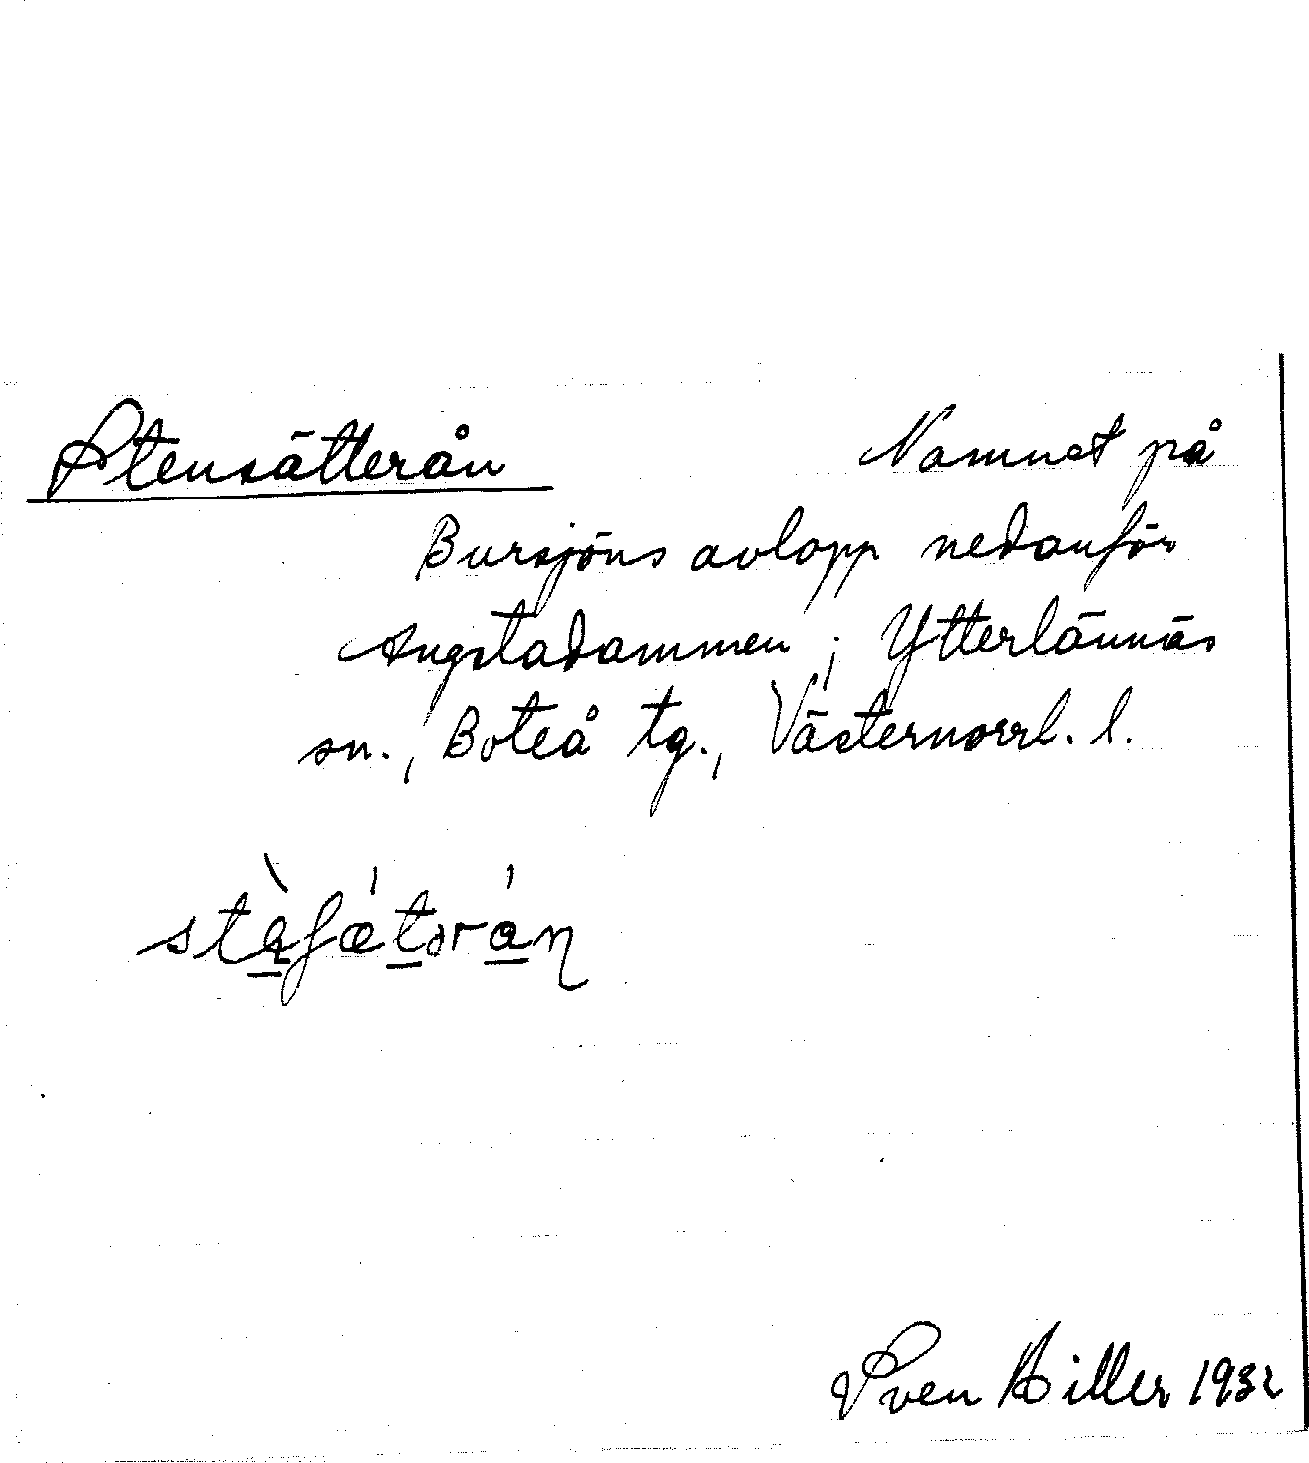 Stensätterån Namnet på
Bursjöns avlopp nedanför
Angstadammen; Ytterlännäs
sn., Boteå tg., Västernorrl. l.
Sven Hiller 1932